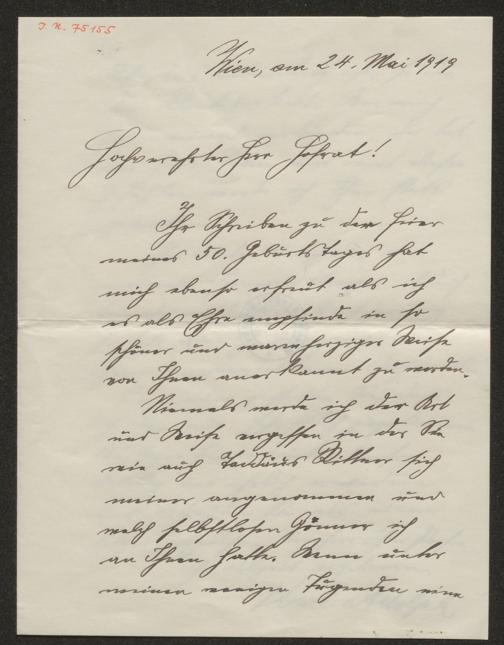 J. N. 75155
Wien, am 24. Mai 1919
Hochverehrter Herr Hofrat!
Ihr Schreiben zu der Feier
meines 50. Geburtstages hat
mich ebenso erfreut als ich
es als Ehre empfinde in so
schöner und warmherziger Weise
von Ihnen anerkannt zu werden.
Niemals werde ich der Art
und Weise vergessen in der Sie
wie auch Taddäus Rittner sich
meiner angenommen und
welch selbstlosen Gönner ich
an Ihnen hatte. Wenn unter
meinen wenigen Tugenden eine